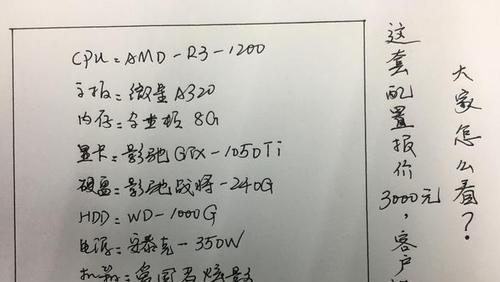 CPU=AMD-R3-1200
主板=微星A320
内存=专业板 8G
显卡=影驰GTX-1050Ti
硬盘=影驰战将-240G
HDD=WD-1000G
电源=安泰克-350W
这套配置报价3000元，客户
大家怎么看？